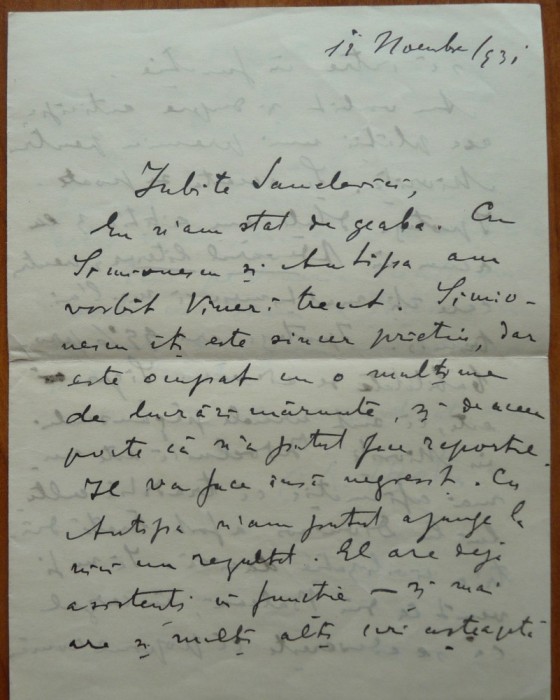 Noembre 1931
Iubite Sanielevici,
Eu n'am stat de geaba. Cu
Simionescu și Antipa am
vorbit Vineri trecut. Simio-
nescu îți este sincer prieten, dar
este ocupat cu o mulțime
de lucrări mărunte, și de aceea
poate că n'a putut face raportul.
Il va face însă negreșit. Cu
Antipa n'am putut ajunge la
nici un rezultat. El are deja
asistenți în funcție — și mai
are și mulți alți cari așteaptă